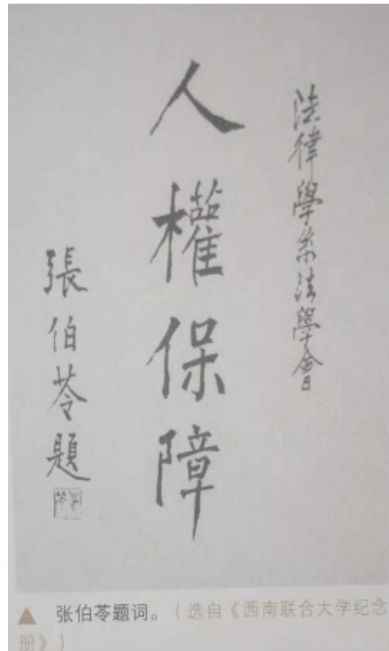 法律學系法學會
人權保障
張伯苓題
▲ 张伯苓题词。（选自《西南联合大学纪念
册》）